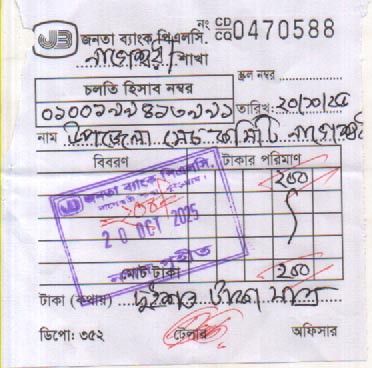 জনতা ব্যাংক পিএলসি. নং CD/CQ 0470588
নাগেশ্বরী শাখা
স্ক্রল নম্বর
চলতি হিসাব নম্বর
তারিখ: ২০/১০/২৫
নাম উপজেলা সেচ কমিটি নাগেশ্বরী
বিবরণ টাকার পরিমাণ
২০০
জনতা ব্যাংক পিএলসি.
20 OCT 2025
নগদ গৃহীত
মোট টাকা ২০০
টাকা (কথায়) দুইশত টাকা মাত্র
ডিপো: ৩৫২ টেলার অফিসার